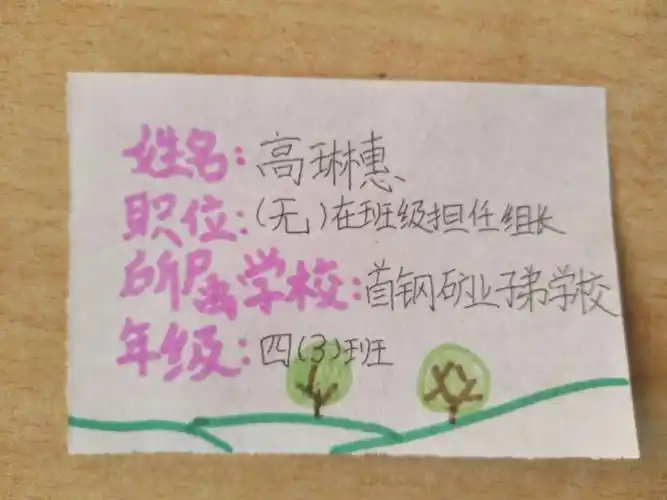 姓名:高琳惠
职位:(无)在班级担任组长
所属学校:首钢矿业子弟学校
年级:四(3)班